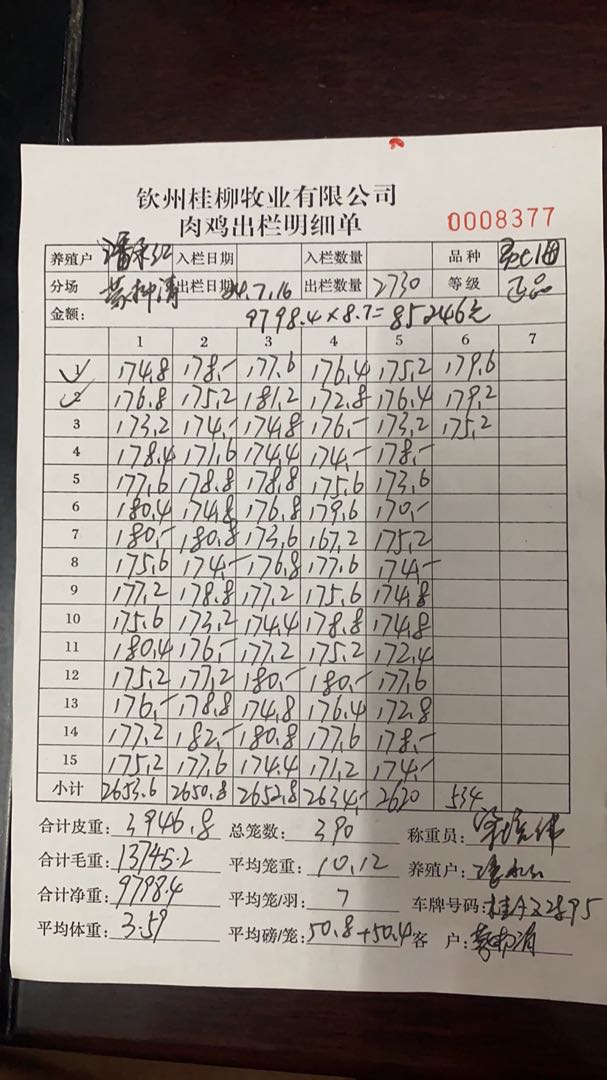 钦州桂柳牧业有限公司
肉鸡出栏明细单
0008377
养殖户 入栏日期 入栏数量 品种
分场 出栏日期 24.7.16 出栏数量 2730 等级 正品
金额: 9798.4×8.7=85246元
1 2 3 4 5 6 7
1 174.8 178.- 177.6 176.4 175.2 179.6
2 176.8 175.2 181.2 172.8 176.4 179.2
3 173.2 174.- 174.8 176.- 173.2 175.2
4 178.4 171.6 174.4 174.- 178.-
5 177.6 178.8 178.8 175.6 173.6
6 180.4 174.8 176.8 179.6 170.-
7 180.- 180.8 173.6 167.2 175.2
8 175.6 174.- 176.8 177.6 174.-
9 177.2 178.8 177.2 175.6 174.8
10 175.6 173.2 174.4 178.8 174.8
11 180.4 176.- 177.2 175.2 172.4
12 175.2 177.2 180.- 180.- 177.6
13 176.- 178.8 174.8 176.4 172.8
14 177.2 182.- 180.8 177.6 178.-
15 175.2 177.6 174.4 171.2 174.-
小计 2653.6 2650.8 2652.8 2634.- 2620 534
合计皮重: 3946.8 总笼数: 390 称重员:
合计毛重: 13745.2 平均笼重: 10.12 养殖户:
合计净重: 9798.4 平均笼/羽: 7 车牌号码:
平均体重: 3.59 平均磅/笼: 50.8+50.4 客 户: